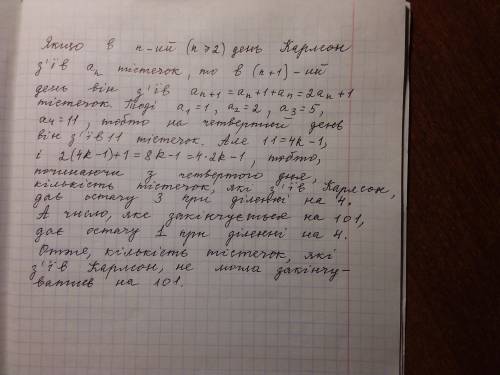 Якщо в n-ий (n≥2) день Карлсон
з'їв aₙ тістечок, то в (n+1)-ий
день він з'їв aₙ₊₁=aₙ+1+aₙ=2aₙ+1
тістечок. Тоді a₁=1, a₂=2, a₃=5,
a₄=11, тобто на четвертий день
він з'їв 11 тістечок. Але 11=4k-1,
і 2(4k-1)+1=8k-1=4·2k-1, тобто,
починаючи з четвертого дня,
кількість тістечок, які з'їв Карлсон,
дає остачу 3 при діленні на 4.
А число, яке закінчується на 101,
дає остачу 1 при діленні на 4.
Отже, кількість тістечок, які
з'їв Карлсон, не могла закінчу-
ватись на 101.